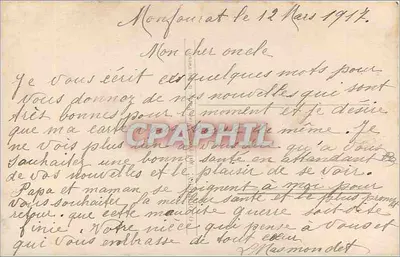 Monfourat le 12 Mars 1917.
Mon cher oncle
Je vous écrit ces quelques mots pour
vous donnez de mes nouvelles que sont
très bonnes pour le moment et je désire
que ma carte de même. Je
ne vois plus qu'a vous
souhaiter une bonne santé en attendant
de vos nouvelles et le plaisir de se voir.
Papa et maman se joignent a moi pour
vous souhaiter la meilleur santé et le plus prompt
retour. que cette maudite guerre soit vite
finie. Votre nièce qui pense a vous et
qui vous embrasse de tout cœur
CPARAMA